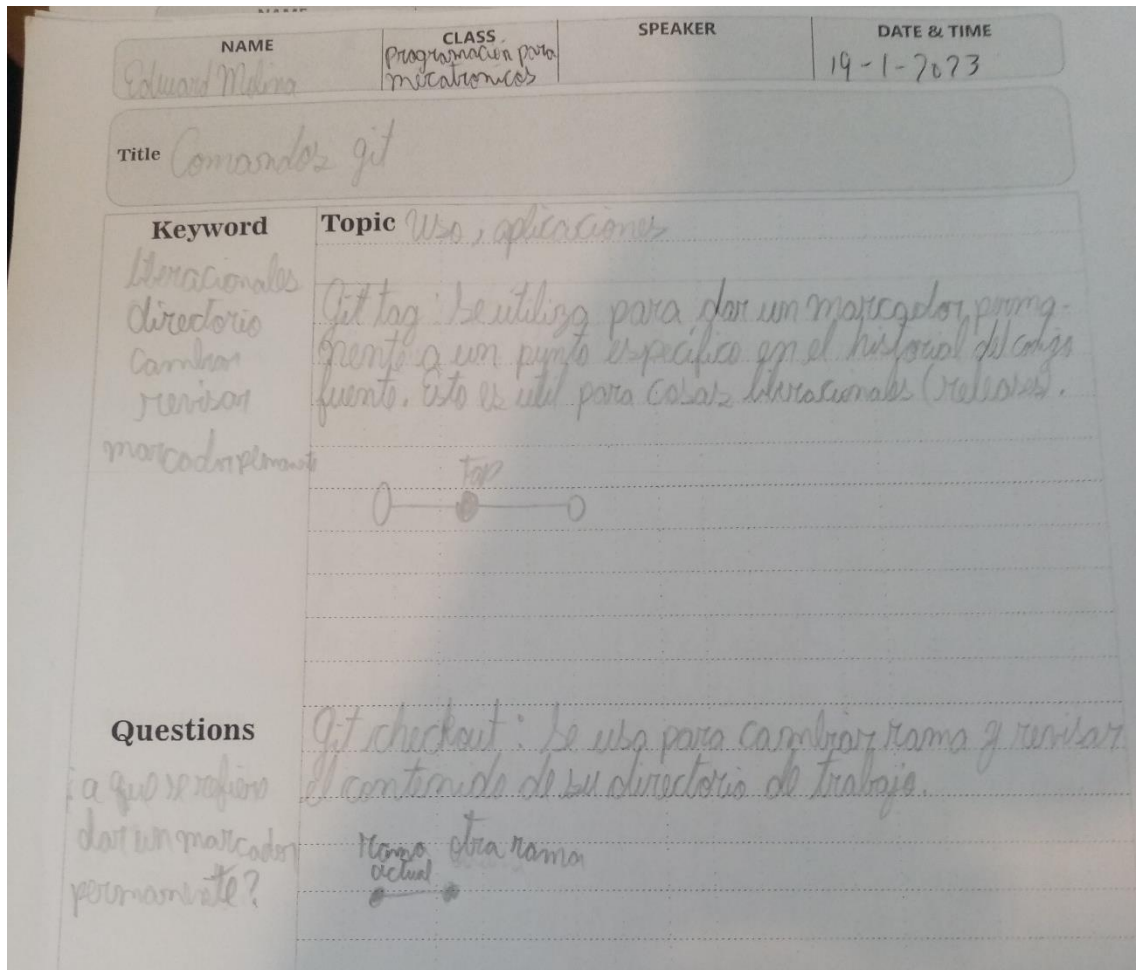 NAME
Eduard Molina
CLASS
Programación para
mecatronicos
SPEAKER
DATE & TIME
19-1-2023
Title Comandos git
Keyword
liberacionales
directorio
Cambiar
revisar
marcador permanente
Topic Uso, aplicaciones
Git tag: Se utiliza para dar un marcador perma-
nente a un punto específico en el historial del codigo
fuente. Esto es util para cosas liberacionales (releases).
Tap
Questions
¿a que se refiere
dar un marcador
permanente?
Git checkout: Se usa para cambiar rama y revisar
el contenido de su directorio de trabajo.
Rama otra rama
actual